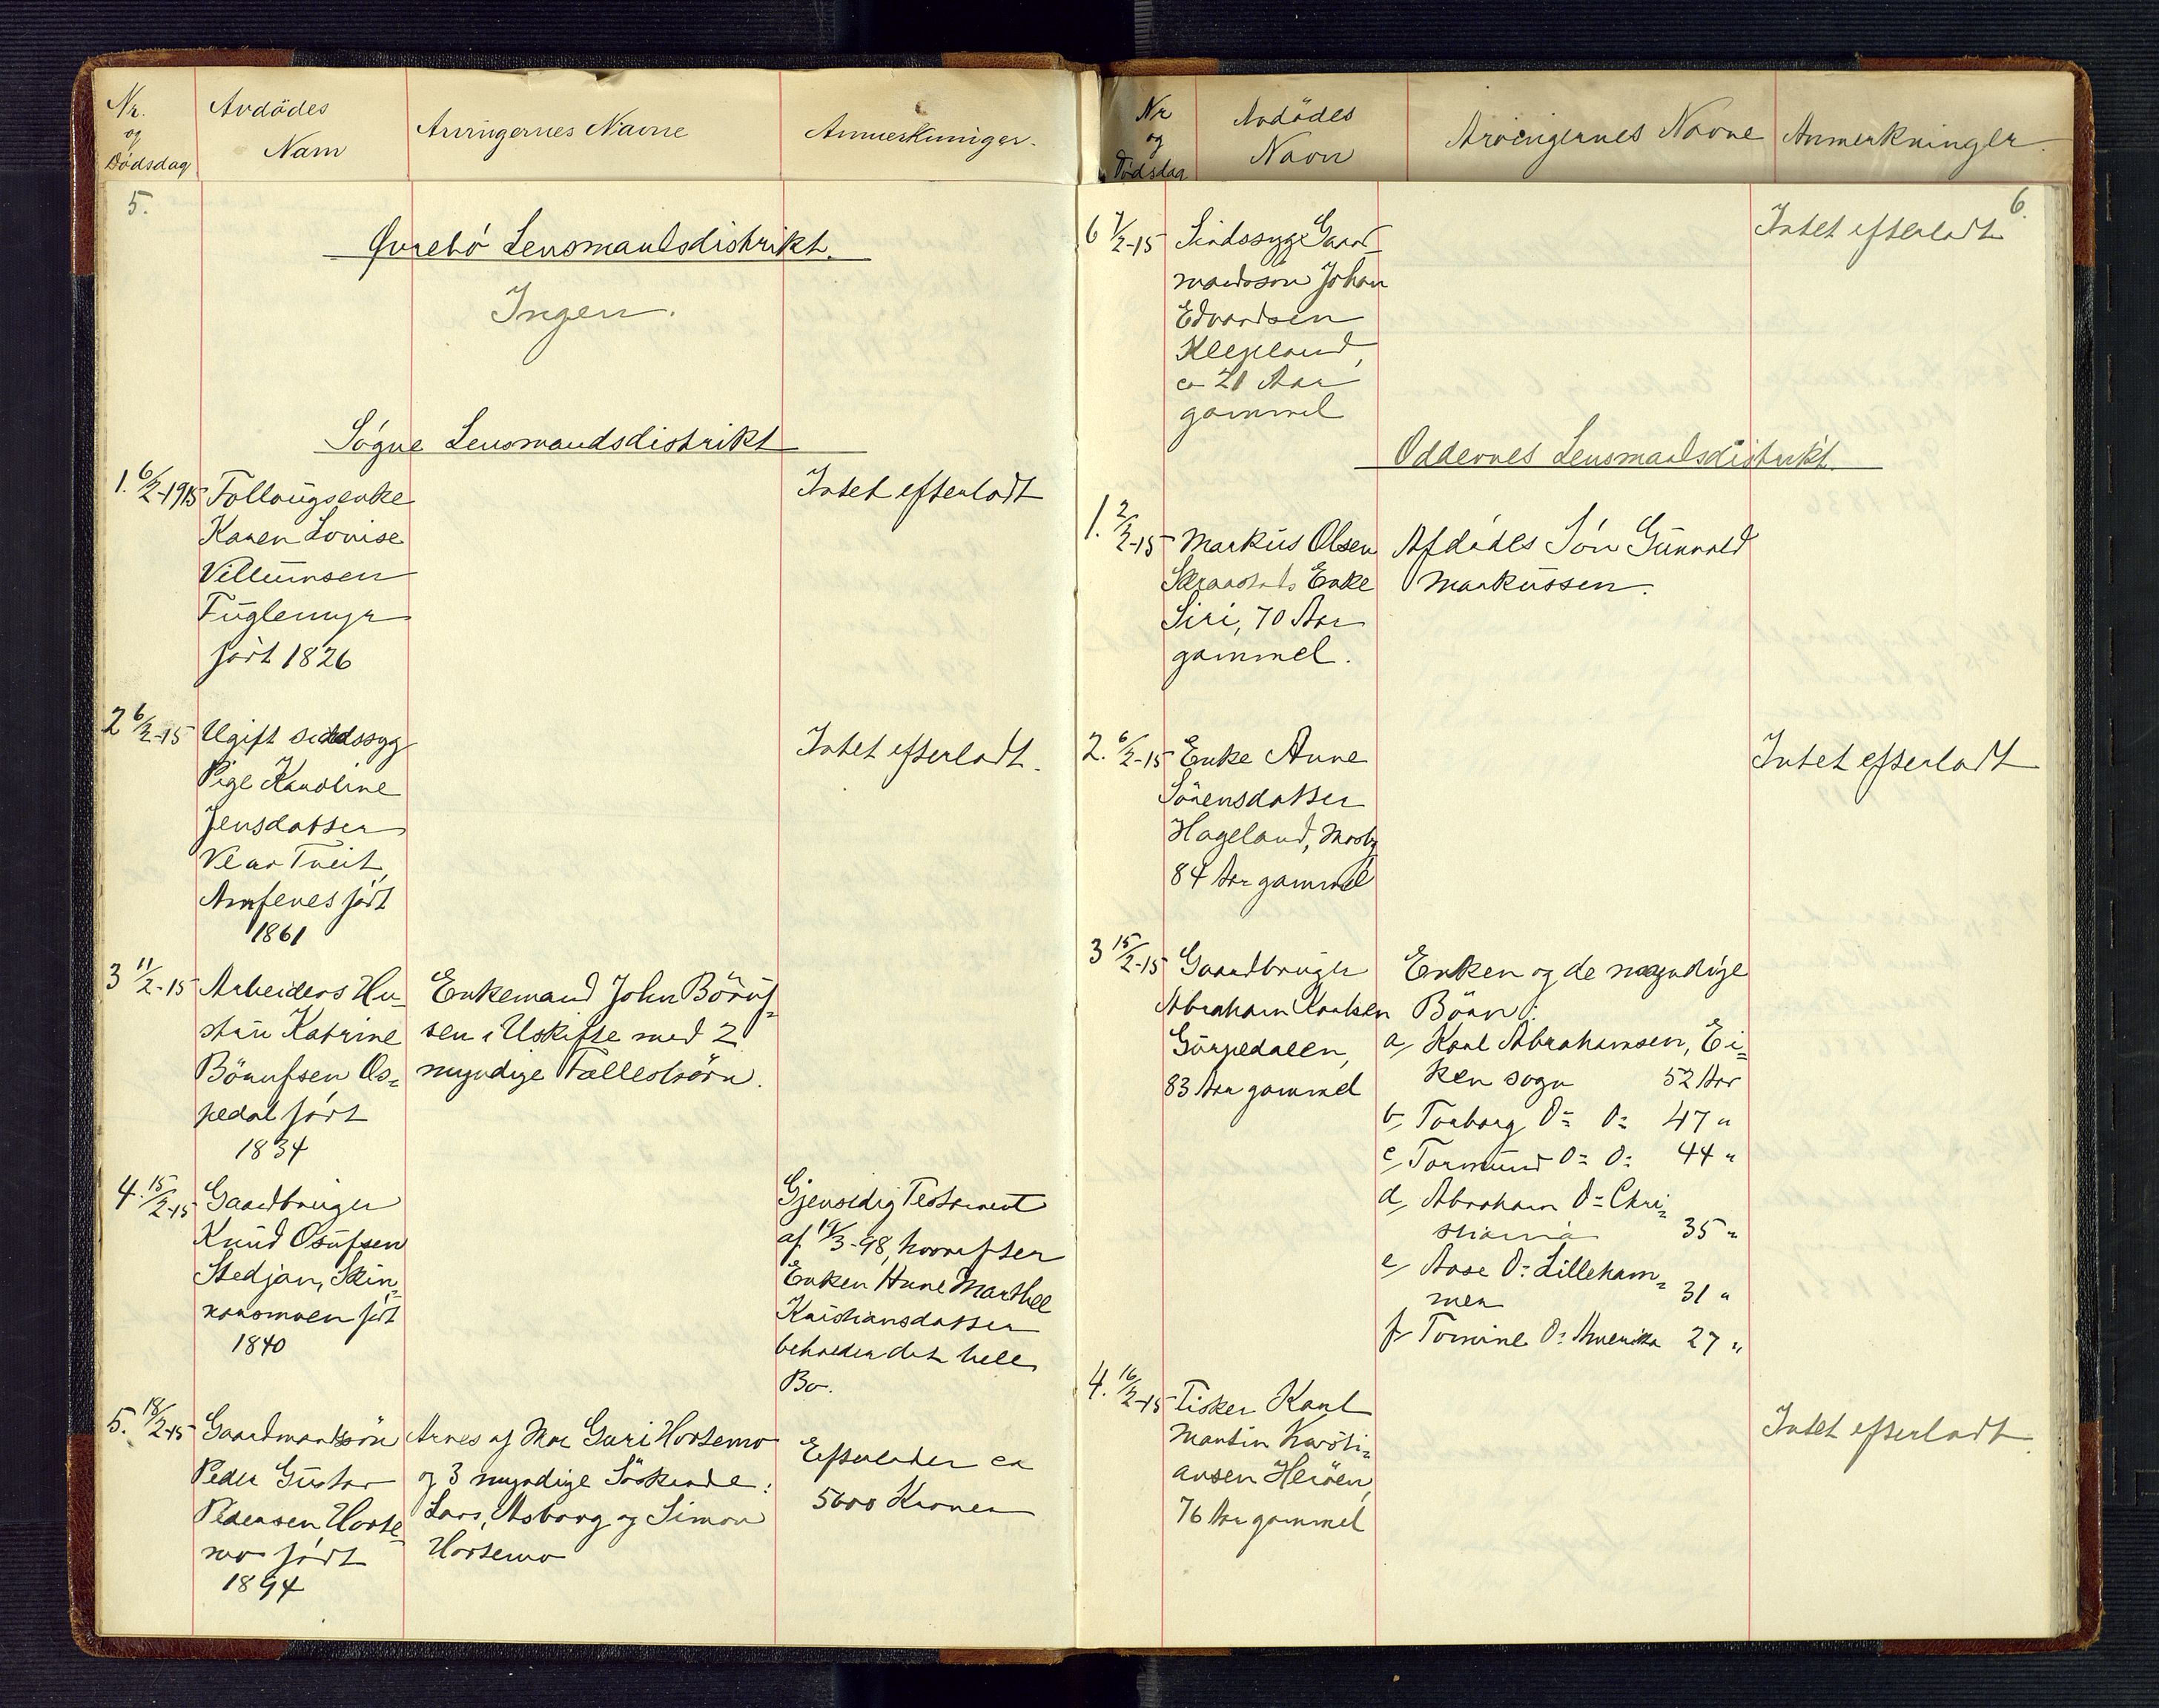 Nr.
og
Dödsdag
Avdödes
Navn
Arvingernes Navne
Anmerkninger.
5.
Øvrebö Lensmandsdistrikt.
Ingen.
Søgne Lensmandsdistrikt
1. 6/2-1915 Follaugsenke
Karen Lovise
Villumsen
Fuglemyr
født 1826
Intet efterladt
2 6/2-15 Ugift sindssyg
Pige Karoline
Jensdatter
Tveit,
født
1861
Intet efterladt.
3 11/2-15 Arbeiders Hu-
stru Katrine
Börufsen Os=
pedal født
1834
Enkemand John Böruf=
sen i Uskifte med 2
myndige Fællesbörn.
4. 15/2-15 Gaardbruger
Knud Osufsen
Stedjan, Skin=
født
1840
Gjensidig Testament
af 19/3-98, hvorefter
Enken Anne Marthe
Kristiansdatter
beholder det hele
Bo.
5. 18/2-15 Gaardmandssön
Peder Gustav
Pedersen Horte=
mo født
1894
Arves af Mor Guri Hortemo
og 3 myndige Söskende:
Lars, Asborg og Simon
Hortemo
Efterlader ca
5600 Kroner
Nr
og
Dödsdag
Avdödes
Navn
Arvingernes Navne
Anmerkninger.
6.
6 7/2-15 Sindssyge Gaard
mandssön Johan
Edvardsen
Klepland,
ca 21 Aar
gammel
Intet efterladt
Oddernes Lensmandsdistrikt.
1. 2/2-15 Markus Olsen
Skraastads Enke
Siri, 70 Aar
gammel.
Afdødes Sön Gunvald
Markussen.
2. 6/2-15 Enke Anne
Sörensdatter
Hageland, Mosby
84 Aar gammel
Intet efterladt
3 15/2-15 Gaardbruger
Abraham Karlsen
Gurpedalen,
83 Aar gammel
Enken og de myndige
Börn:
a, Karl Abrahamsen, Ei=
ken sogn 52 Aar
b, Torborg D= D= 47 "
c, Tormund D= D= 44 "
d, Abraham D= Chri=
stiania 35 "
e, Aase D= Lilleham=
mer 31 "
f, Tomine D= Amerika 27 "
4. 16/2-15 Fisker Karl
Martin Kristi=
ansen Heröen,
76 Aar gammel
Intet efterladt.